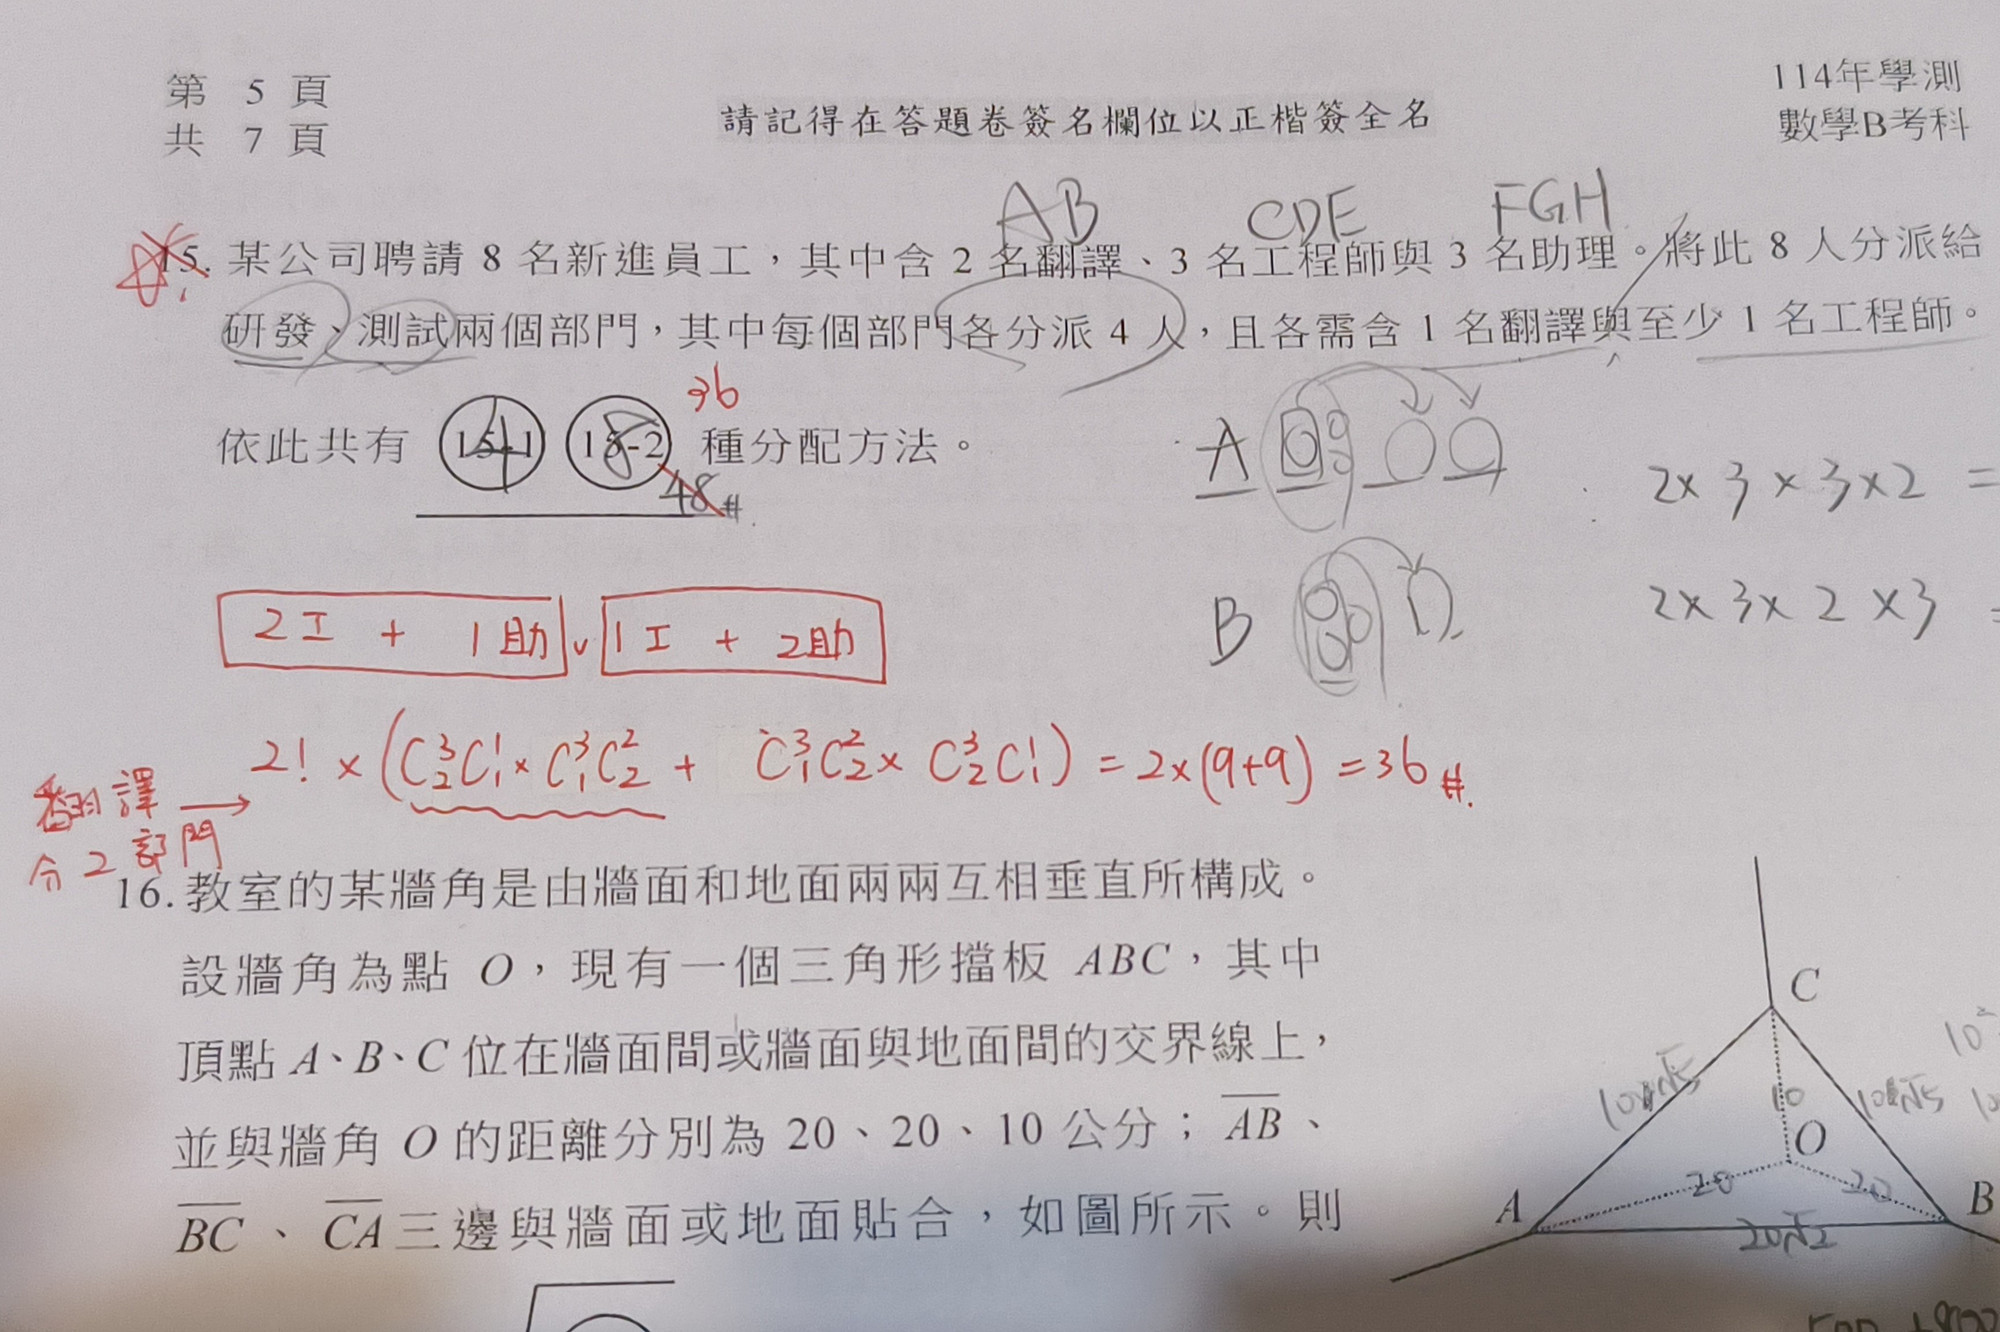 第 5 頁
共 7 頁
請記得在答題卷簽名欄位以正楷簽全名
114年學測
數學B考科
AB CDE FGH
15. 某公司聘請 8 名新進員工，其中含 2 名翻譯、3 名工程師與 3 名助理。將此 8 人分派給
研發、測試兩個部門，其中每個部門各分派 4 人，且各需含 1 名翻譯與至少 1 名工程師。
36
依此共有 15-1 15-2 種分配方法。
48 #
48#
A
2×3×3×2 =
B
2×3×2×3 =
2工 + 1助 ∨ 1工 + 2助
2! × (C³₂C¹₁ × C³₁C²₂ + C³₁C²₂ × C³₂C¹₁) = 2×(9+9) = 36 #.
翻譯 →
分2部門
16. 教室的某牆角是由牆面和地面兩兩互相垂直所構成。
設牆角為點 O，現有一個三角形擋板 ABC，其中
頂點 A、B、C 位在牆面間或牆面與地面間的交界線上，
並與牆角 O 的距離分別為 20、20、10 公分；AB、
BC、CA三邊與牆面或地面貼合，如圖所示。則
C
10√5 10 10√5
O
20 20
A B
20√2